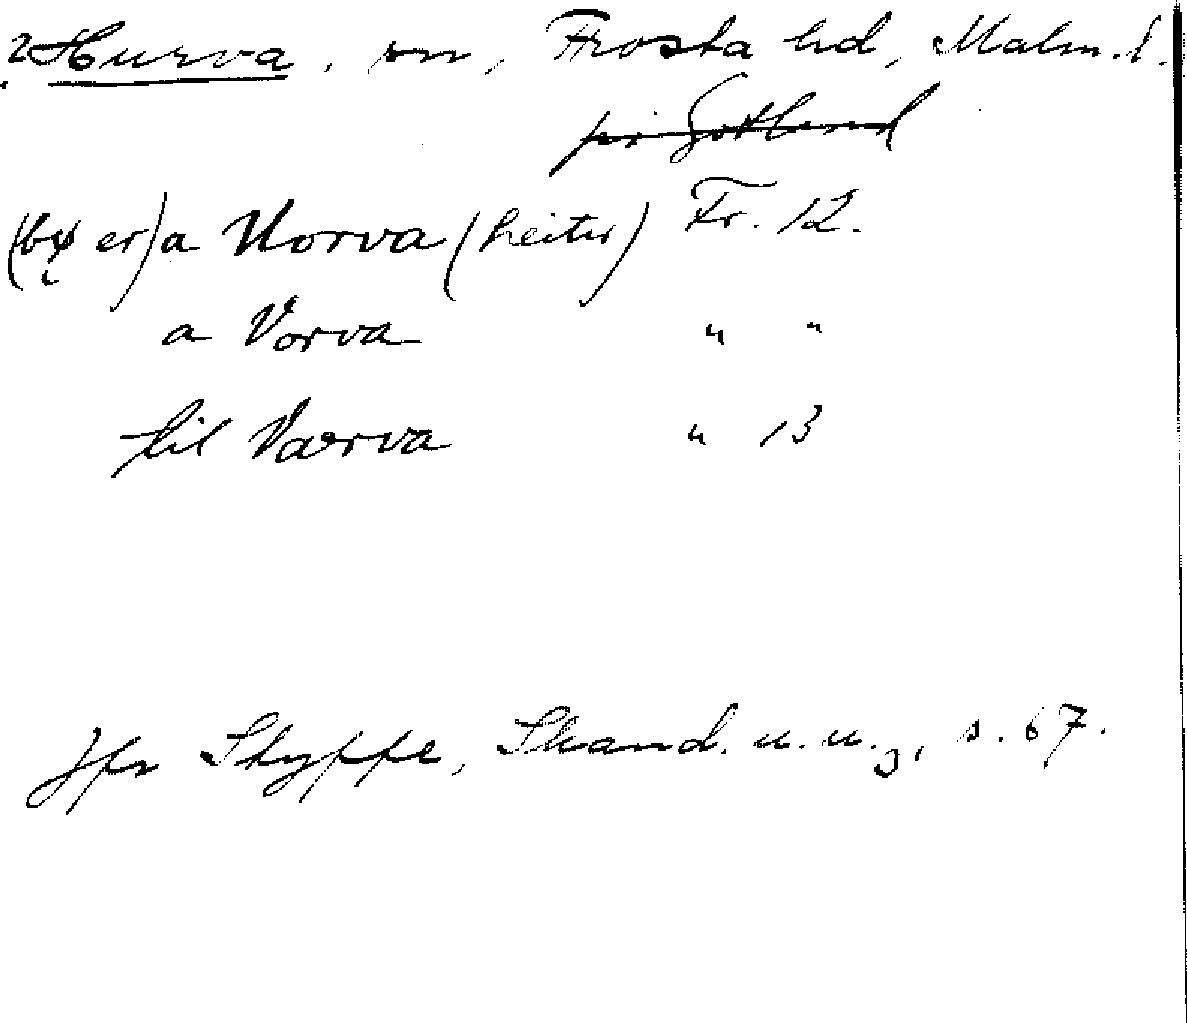 ? Hurva, sn, Frosta hd, Malm. l.
på Gotland
(by er) a Uorva (heitir) Fr. 12.
a Vorva " "
til Værva " 13
Jfr Skyffe, Skand. u. u. s. 67.